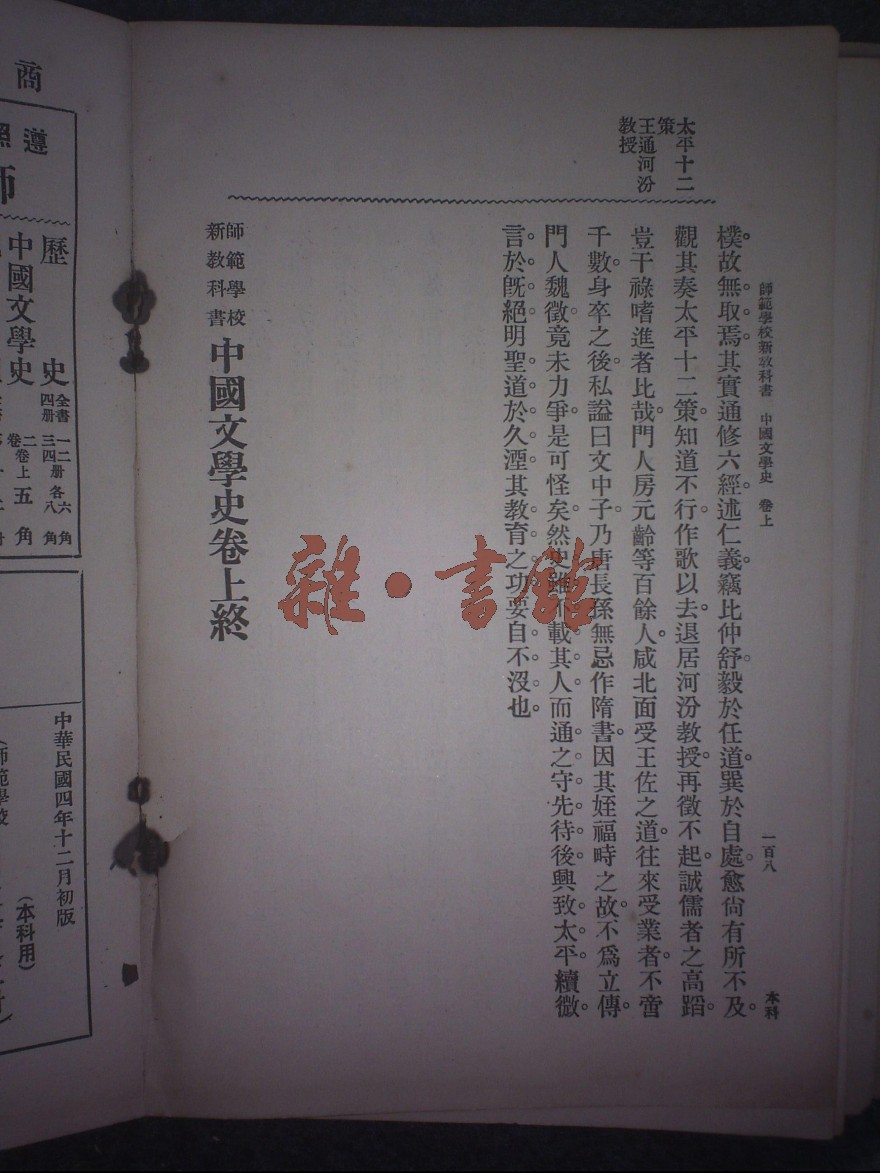 師範學校新教科書 中國文學史 卷上 一百八 本科
太平十二
策
王通河汾
教授
樸故無取焉。其實通修六經述仁義竊比仲舒毅於任道巽於自處愈尚有所不及。
觀其奏太平十二策。知道不行作歌以去退居河汾教授。再徵不起。誠儒者之高蹈
豈干祿嗜進者比哉。門人房元齡等百餘人。咸北面受王佐之道。往來受業者。不啻
千數。身卒之後。私謚曰文中子。乃唐長孫無忌作隋書。因其姪福畤之故。不爲立傳。
門人魏徵竟未力爭。是可怪矣。然史雖不載其人。而通之守先待後興致太平續微
言於旣絕明聖道於久湮。其教育之功要自不沒也。
師範學校
新教科書
中國文學史卷上終
雜·書館
商
遵照
師
歷史
全書四册
一二册各六角
三四册各八角
中國文學史
二卷
卷上五角
中華民國四年十二月初版
(師範學校
(本科用)